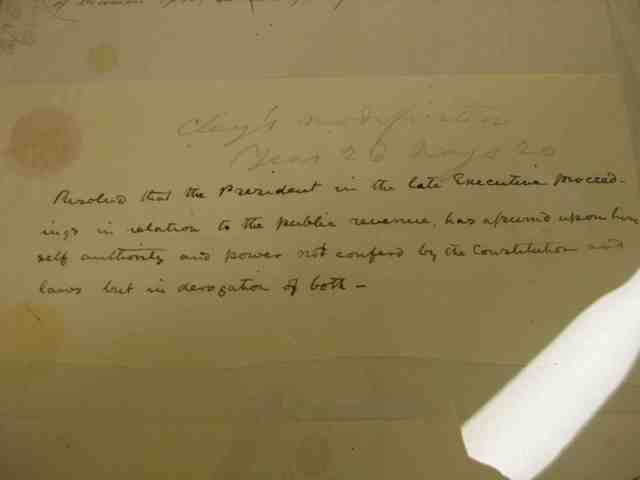 of
Clay's modification
Yeas 26 Nays 20
Resolved that the President in the late Executive proceed-
ings in relation to the public revenue, has assumed upon him
self authority and power not conferd by the Constitution and
laws but in derogation of both –